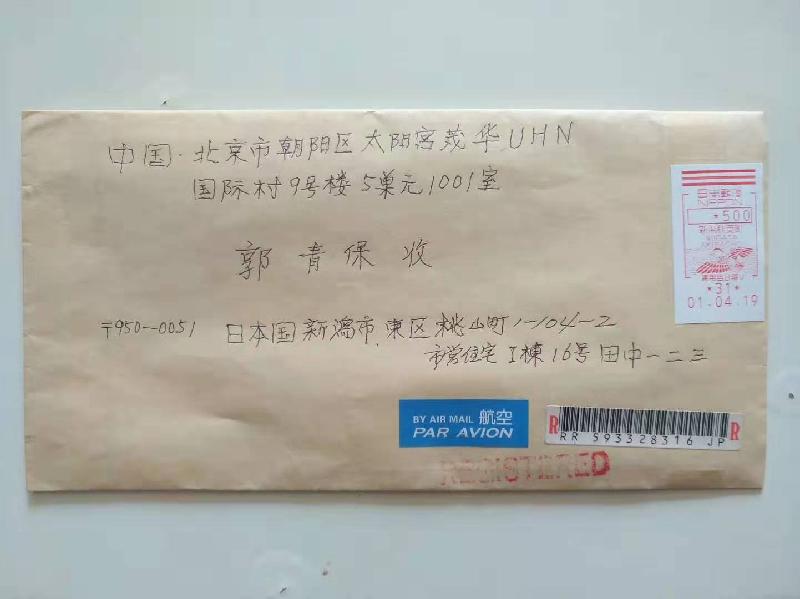 中国·北京市朝阳区太阳宫茂华UHN
国际村9号楼5单元1001室
郭青保收
〒950-0051 日本国新潟市.東区桃山町1-104-2
市営住宅I棟16号田中一二三
日本郵便
NIPPON
*500
*31*
01.04.19
BY AIR MAIL 航空
PAR AVION
R R
RR 593328316 JP
REGISTERED